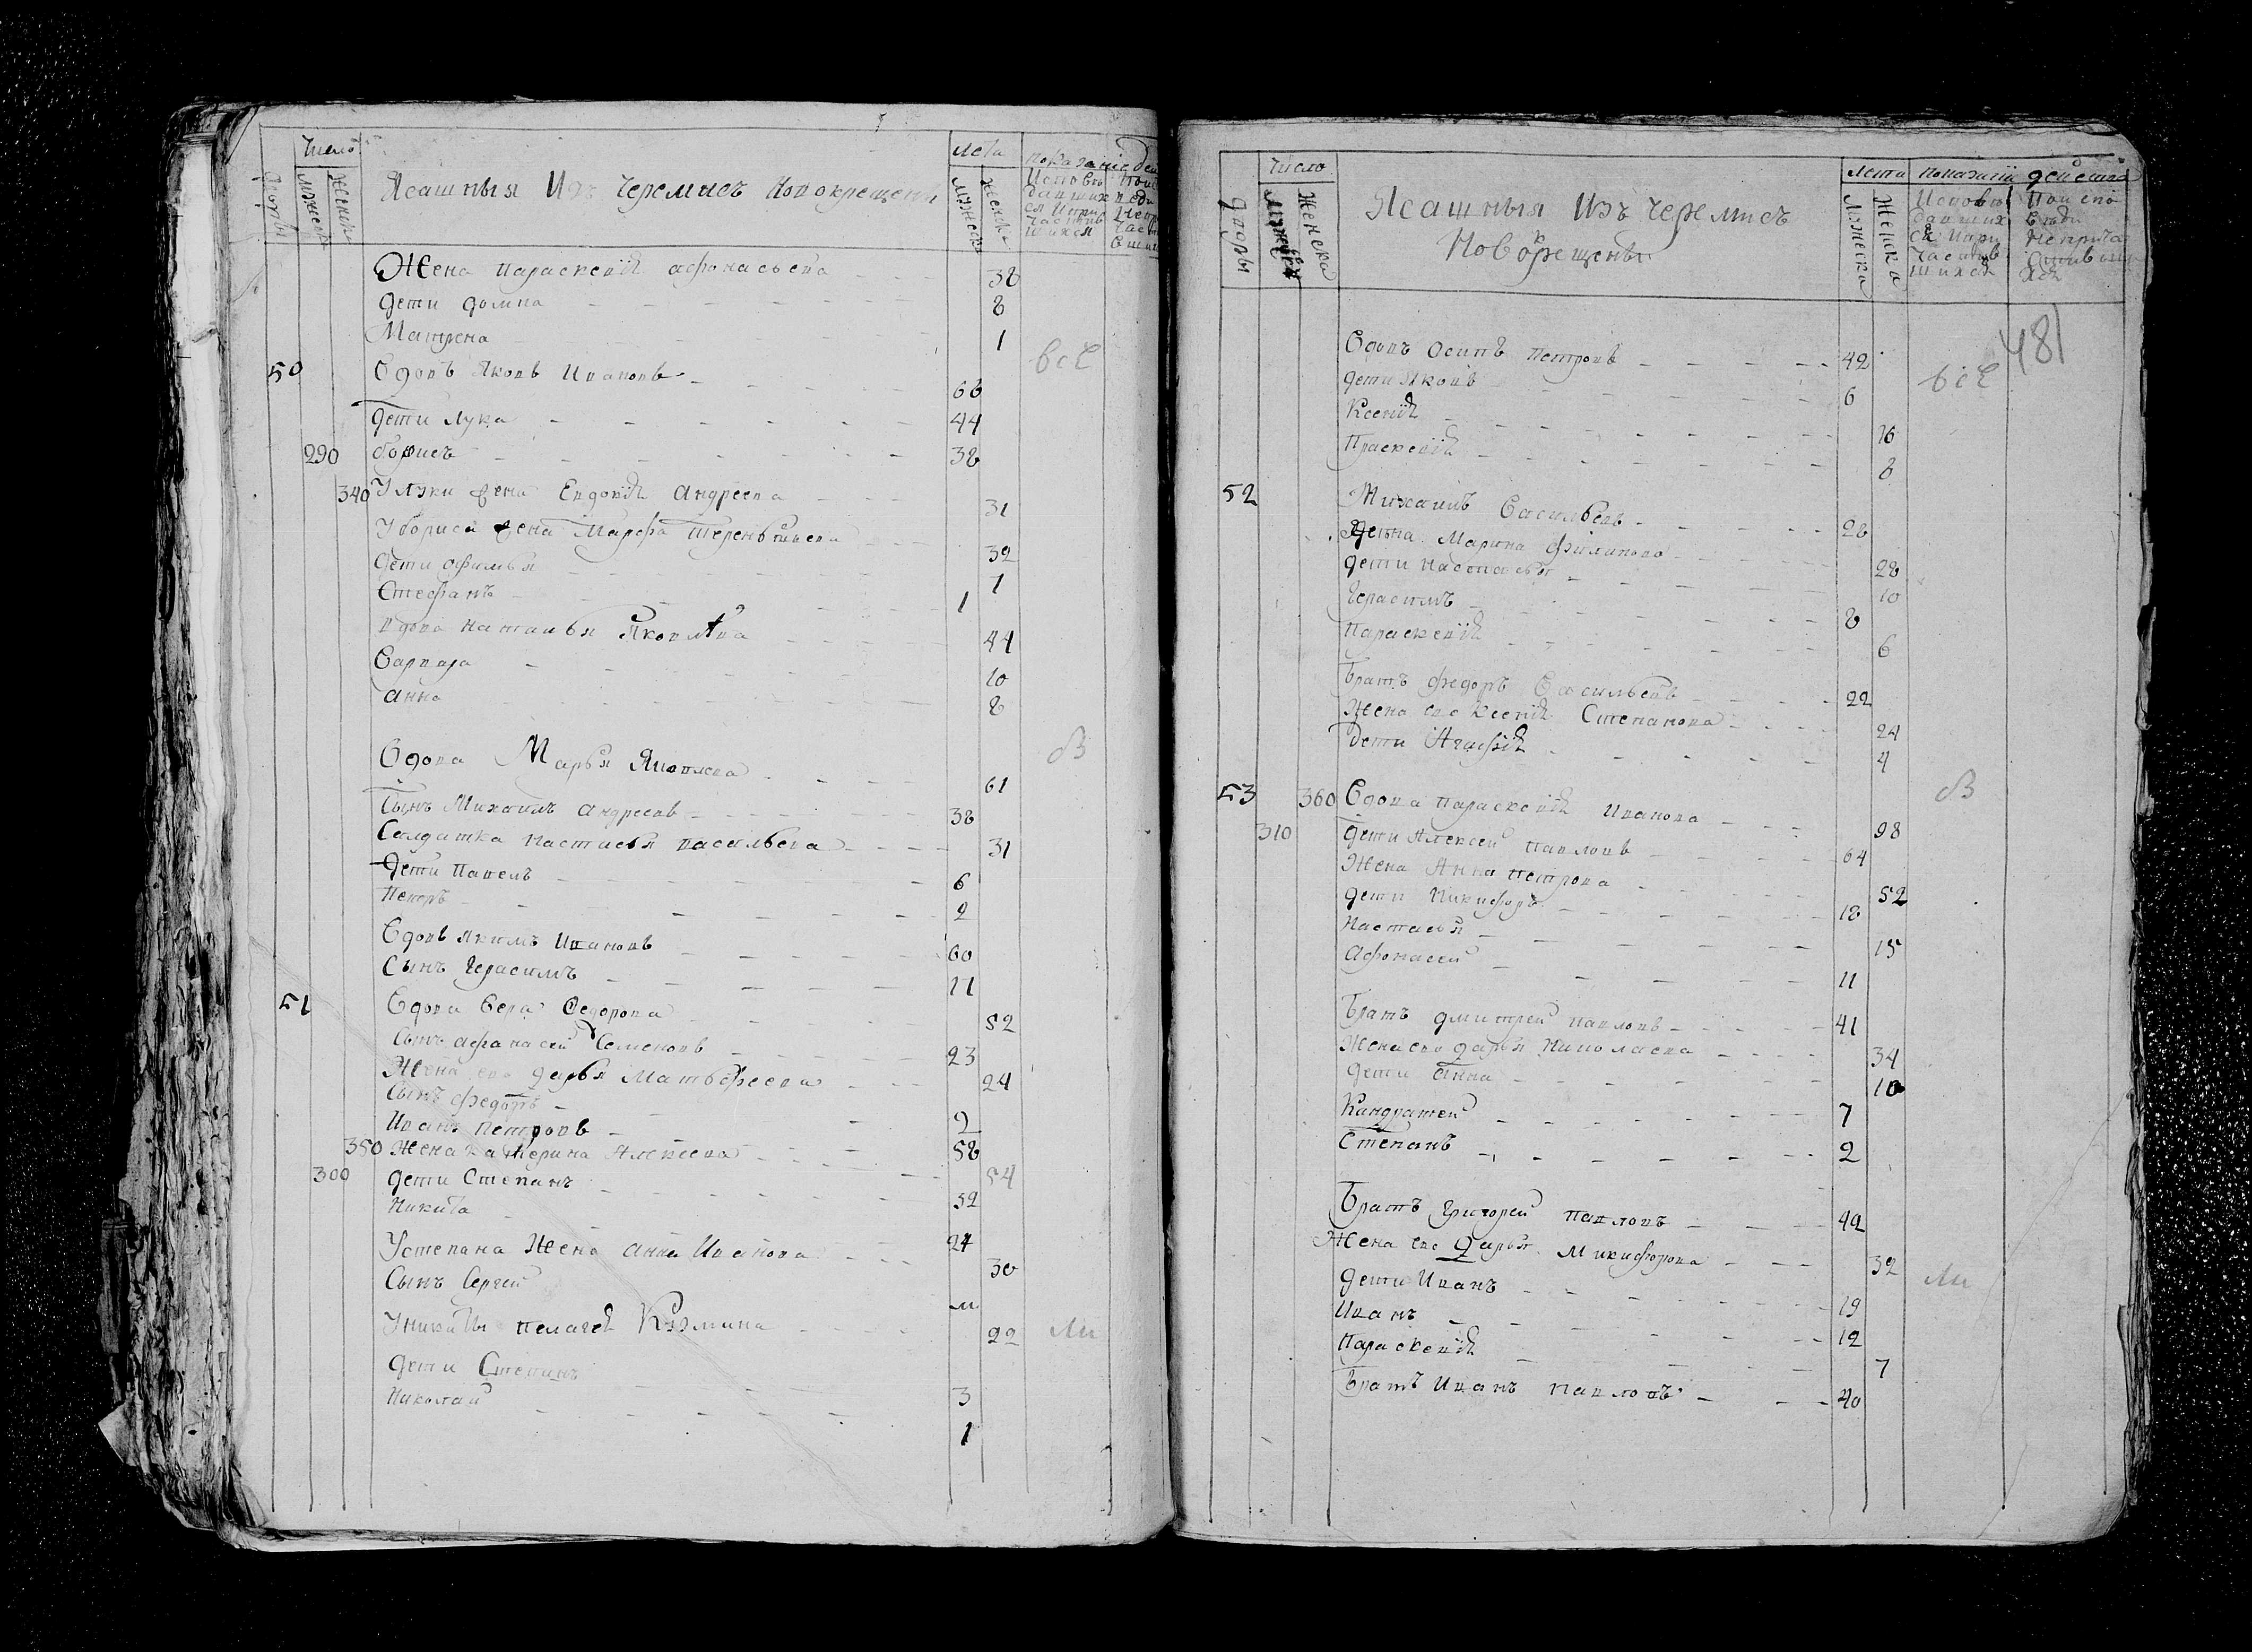 Число
Лета
показание дей
дворы
мужеск
женска
Ясашныя Изъ Черемисъ Новокрещены
мужеска
женска
Исповѣ
давших
ся и при
частив
шихся
Жена Параскевия Афонасьева 38
дети Домна 8
Матрена 1
все
50 Вдовъ Яковъ Ивановъ 66
дети Лука 44
290 Борисъ 38
340 У Луки жена Евдокия Андреева 31
У Бориса жена Марфа Терентьева 32
дети Офимья 1
Стефанъ 1
вдова Наталья Яковлева 44
Варвара 10
Анна 8
Вдова Марья Яковлева 61
Сынъ Михаилъ Андреевъ 38
Солдатка Настасья Васильева 31
дети Павелъ 6
Петръ 2
Вдовъ Якимъ Ивановъ 60
Сынъ Герасимъ 11
51 Вдова Вера Федорова 52
Сынъ Афанасей Семеновъ 23
Жена ево Дарья Матвеева 24
Сынъ Федоръ 2
Иванъ Петровъ 58
350 Жена Катерина Алексеева 54
300 дети Степанъ 32
Никита 24
У Степана Жена Анна Иванова 30
Сынъ Сергей
У Никиты Пелагея Кузмина 22
дети Степанъ 3
Николай 1
Число
Лета
показание действа
дворы
женска
Ясашныя Изъ Черемисъ
Новокрещены
мужеска
женска
Исповѣ
давших
ся и при
частив
шихся
481
Вдовъ Осипъ Петровъ 42
все
дети Яковъ 6
Ксения 16
Праскевия 8
52 Михаилъ Васильевъ 28
Жена Марина Филипова 28
дети Настасья 10
Герасимъ 8
Параскевия 6
Братъ Федоръ Васильевъ 22
Жена ево Ксения Степанова 24
Дети Агафия 4
53 360 Вдова Параскевия Иванова 98
310 дети Алексей Павловъ 64
Жена Анна Петрова 52
дети Никифоръ 18
Настасья 15
Афонасей 11
Братъ Дмитрей Павловъ 41
Жена ево Дарья Николаева 34
дети Анна 10
Кандратей 7
Степанъ 2
Братъ Григорей Павловъ 42
Жена ево Дарья Микифорова 32
дети Иванъ 19
Иванъ 12
Параскевия 7
Братъ Иванъ Павловъ 40